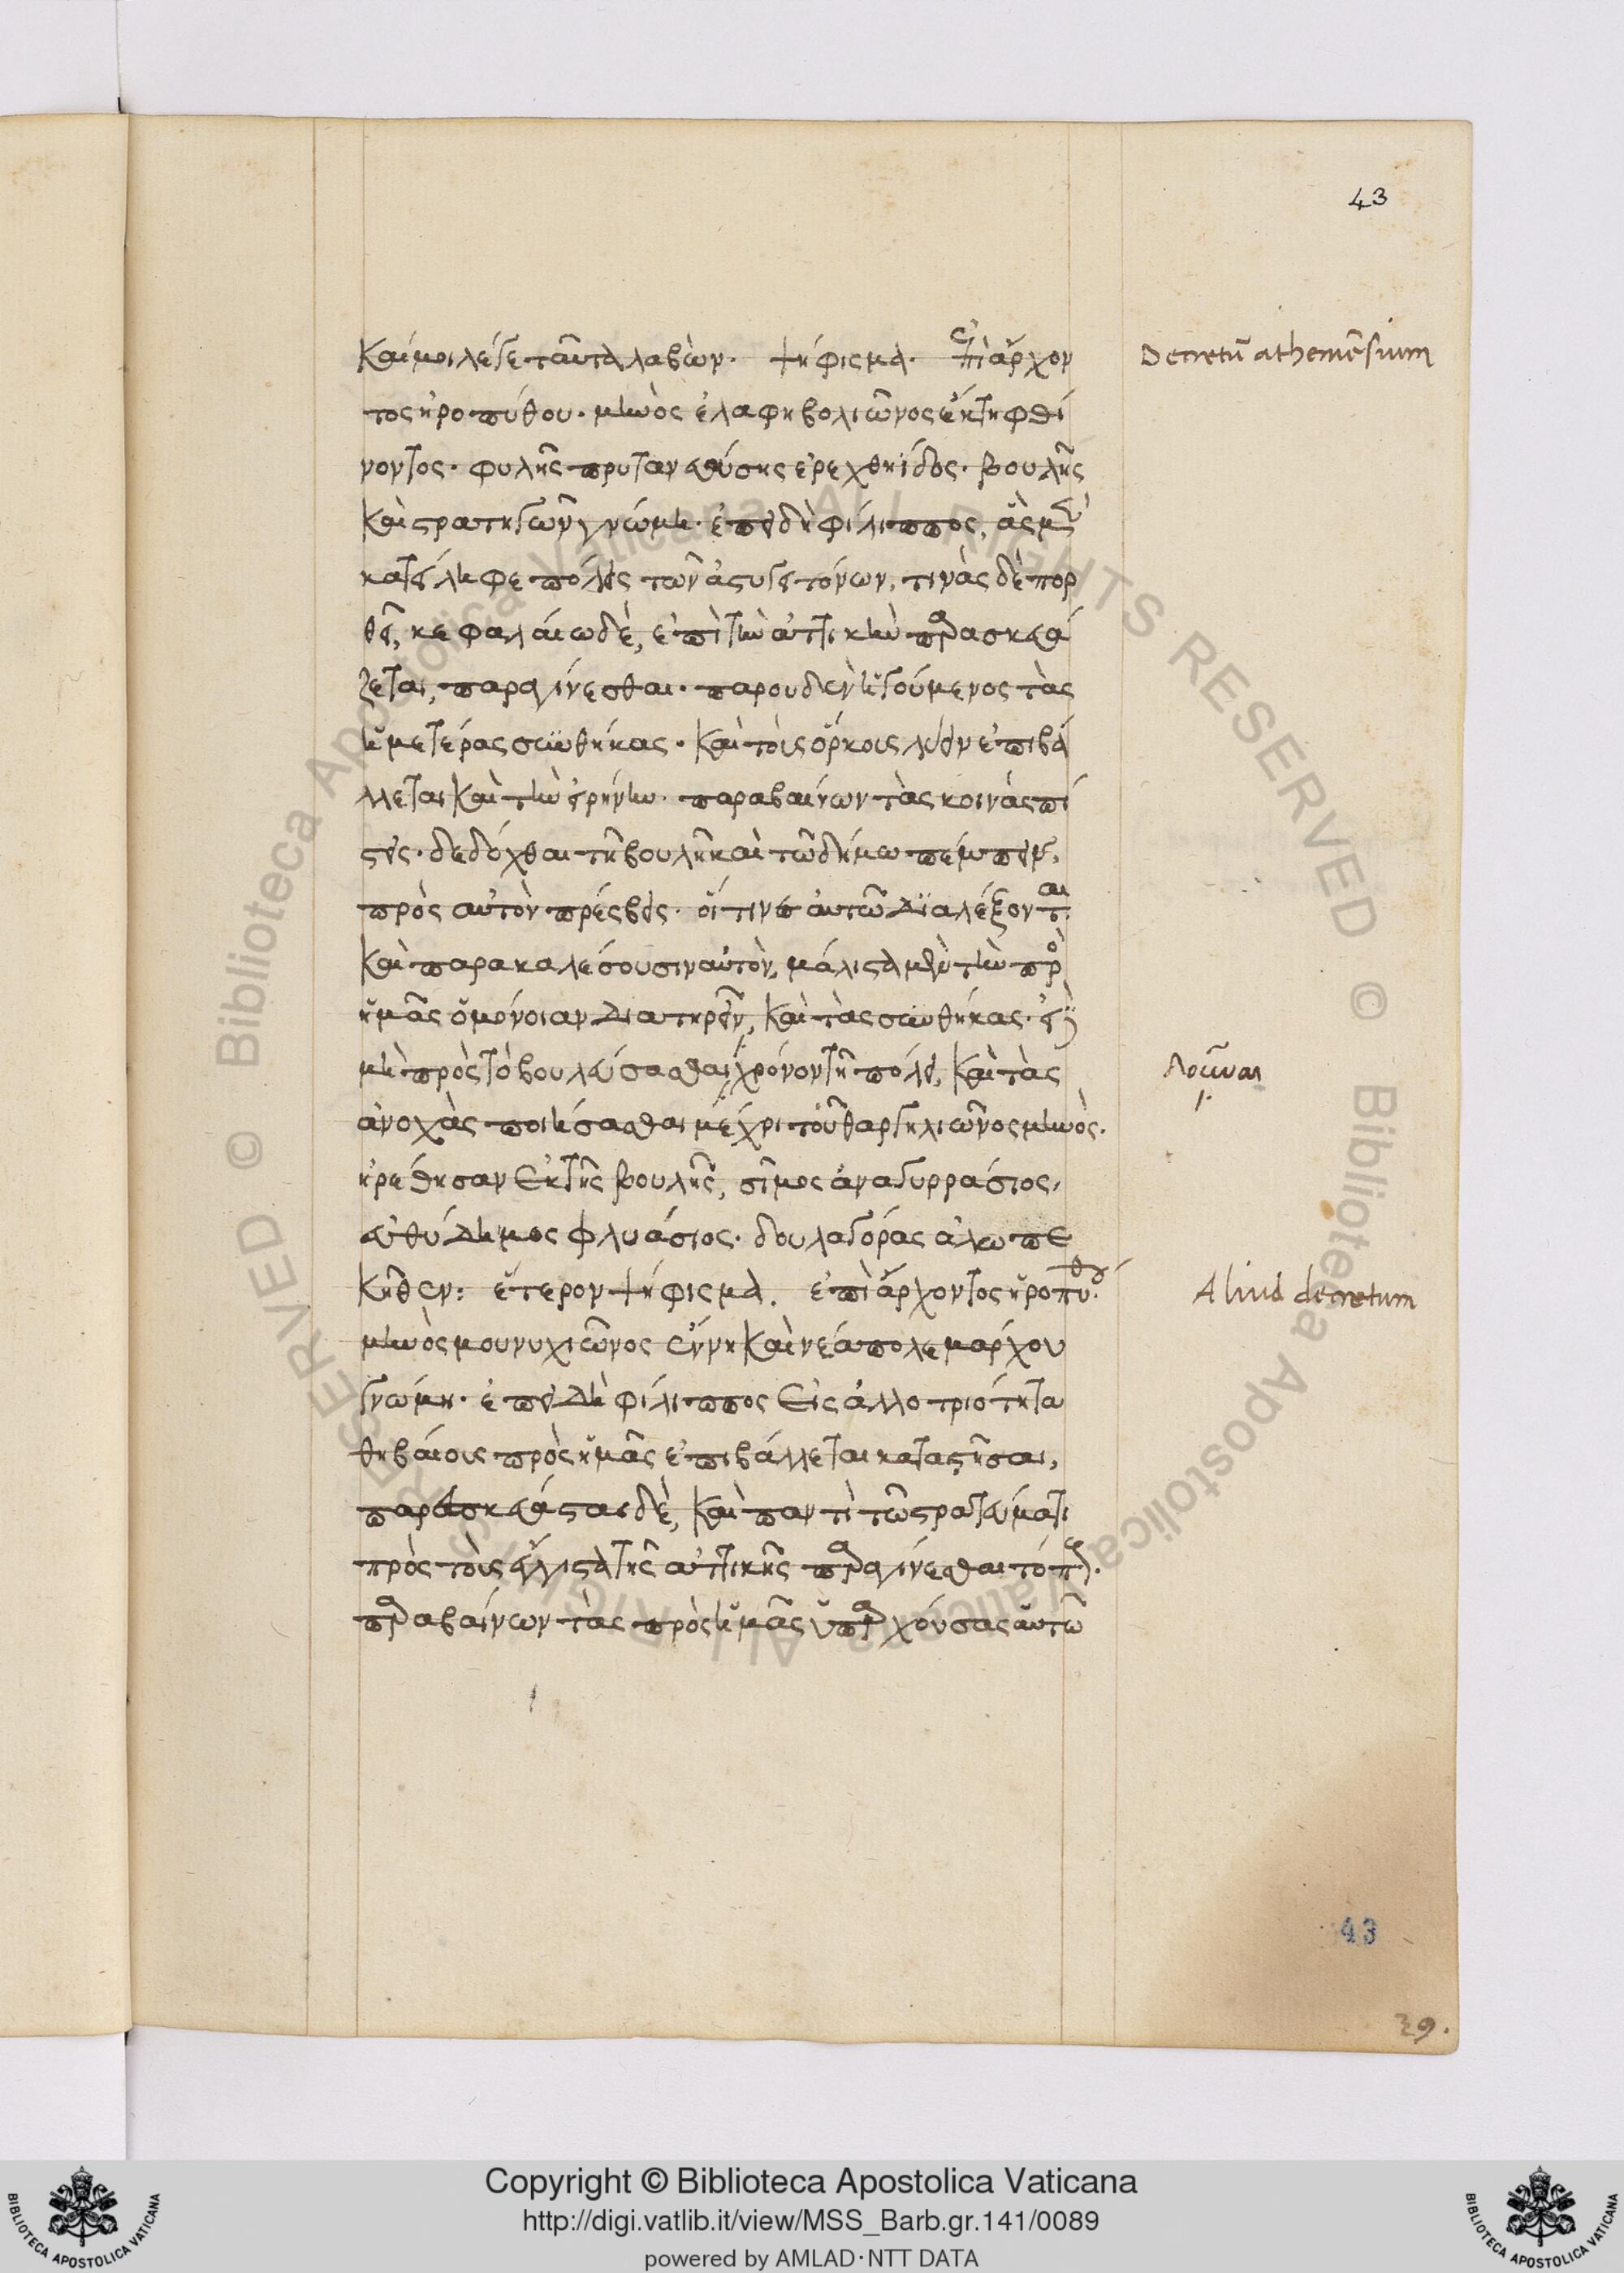 43
Καί μοι λέγε ταῦτα λαβών. ψήφισμα. ἐπὶ ἄρχον
Decretū atheniēsium
τος ἡροπύθου. μηνὸς ἐλαφηβολιῶνος ἕκτη φθί
νοντος. φυλῆς πρυτανευούσης ἐρεχθηίδος. βουλῆς
καὶ στρατηγῶν γνώμη. ἐπειδὴ φίλιππος, ἃς μὲν
κατείληφε πόλεις τῶν ἀστυγειτόνων, τινὰς δὲ πορ
θεῖ, κεφαλαίω δὲ, ἐπὶ τὴν ἀττικὴν παρασκευά
ζεται, παραγίνεσθαι. παρ ουδὲν ἡγούμενος τὰς
ἡμετέρας συνθήκας. καὶ τοὺς ὅρκους λύειν ἐπιβά
λλεται καὶ τὴν εἰρήνην. παραβαίνων τὰς κοινὰς πί
στεις. δεδόχθαι τῆ βουλῆ καὶ τῶ δήμω πέμπειν,
πρὸς αὐτὸν πρέσβεις. οἵτινες αὐτῶ διαλέξονται
καὶ παρακαλέσουσιν αὐτὸν, μάλιστα μὲν τὴν πρὸς
ἡμᾶς ὁμόνοιαν διατηρεῖν, καὶ τὰς συνθήκας. εἰ δὲ
μὴ πρὸς τὸ βουλεύσασθαι χρόνον τῆ πόλει, καὶ τὰς
δοῦναι
ἀνοχὰς ποιήσασθαι μέχρι τοῦ θαργηλιῶνος μηνὸς.
ἡρέθησαν ἐκ τῆς βουλῆς, σῖμος ἀναγυρράσιος,
εὐθύδημος φλυάσιος. βουλαγόρας ἀλωπε
κῆθεν: ἕτερον ψήφισμα. ἐπὶ ἄρχοντος ἡροπύθου
Aliud decretum
μηνὸς μουνυχιῶνος ἕνη καὶ νέα πολεμάρχου
γνώμη. ἐπειδὴ φίλιππος εἰς ἀλλοτριότητα
θηβαίους πρὸς ἡμᾶς ἐπιβάλλεται καταστῆσαι,
παρασκεύασται δὲ, καὶ παντὶ τῶ στρατεύματι
πρὸς τοὺς ἔγγιστα τῆς ἀττικῆς παραγίνεσθαι τόπους.
παραβαίνων τὰς πρὸς ἡμᾶς ὑπαρχούσας αὐτῶ
43
39.
Copyright © Biblioteca Apostolica Vaticana
http://digi.vatlib.it/view/MSS_Barb.gr.141/0089
powered by AMLAD·NTT DATA